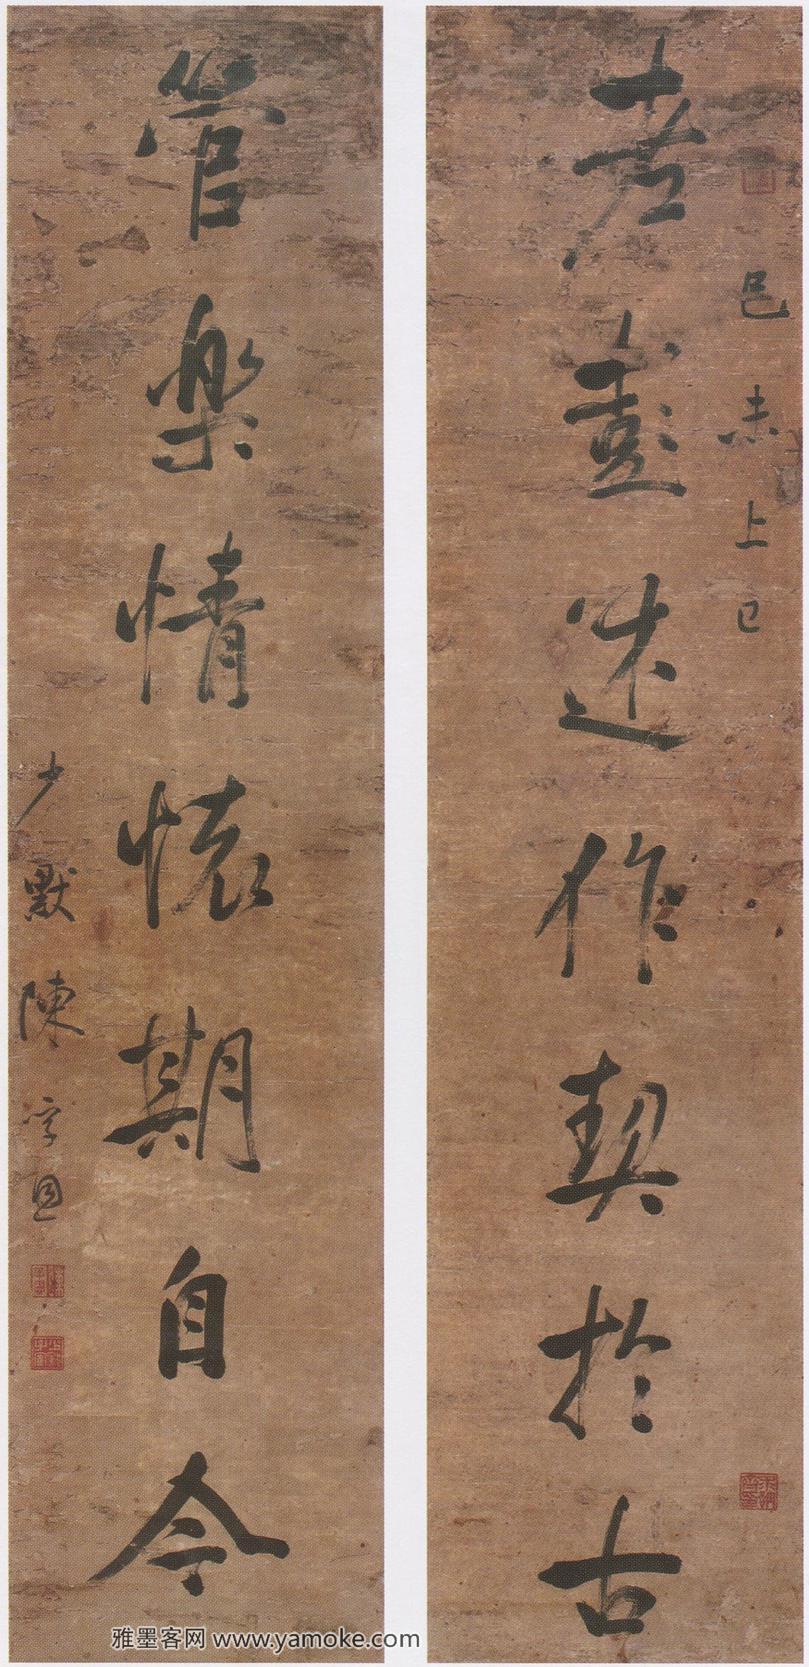 己未上巳
老彭述作契於古
管樂情懷期自今
少默陳孚恩
雅墨客网 www.yamoke.com